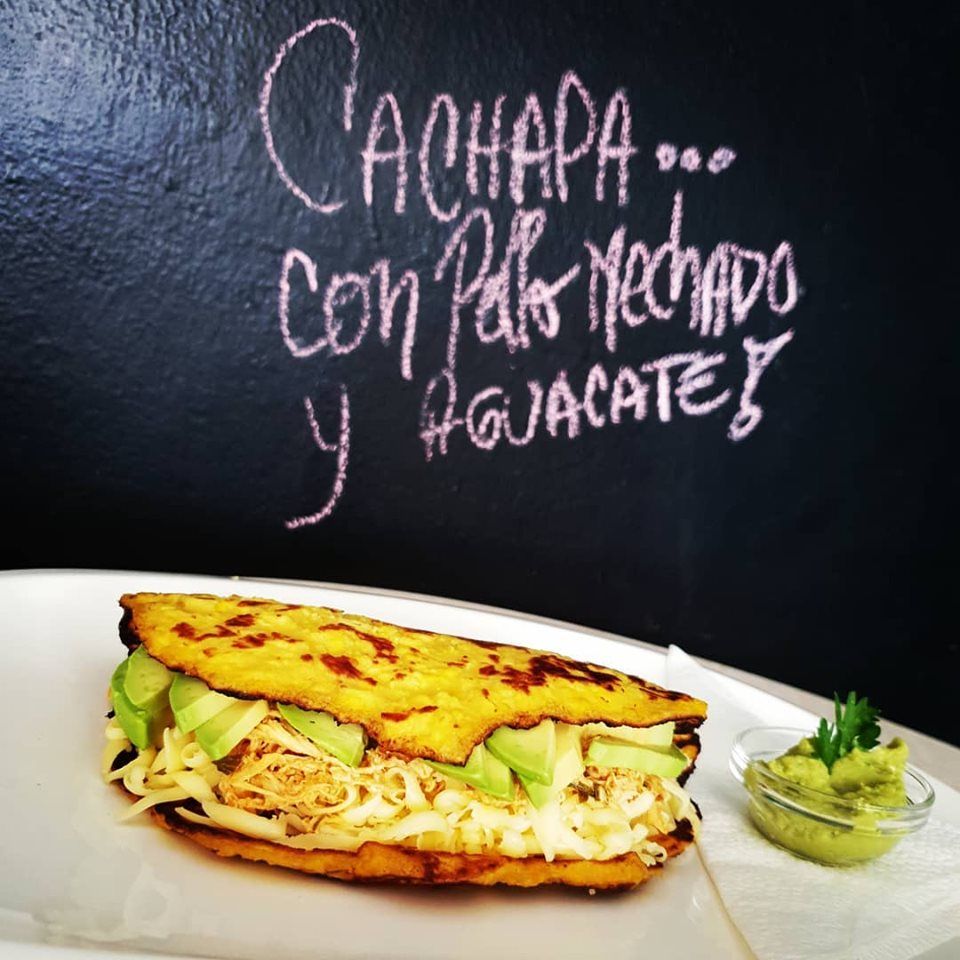 CACHAPA...
con Pollo MechADO
y AGUACATE!